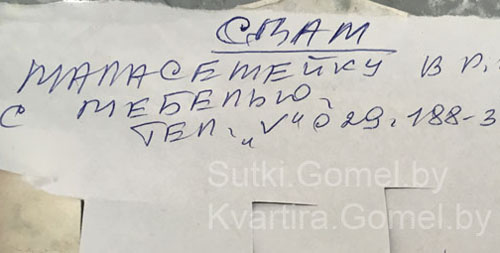 СДАМ
МАЛАСЕМЕЙКУ В Р.
С МЕБЕЛЬЮ.
ТЕЛ. „V" 029. 188-3
Sutki.Gomel.by
Kvartira.Gomel.by